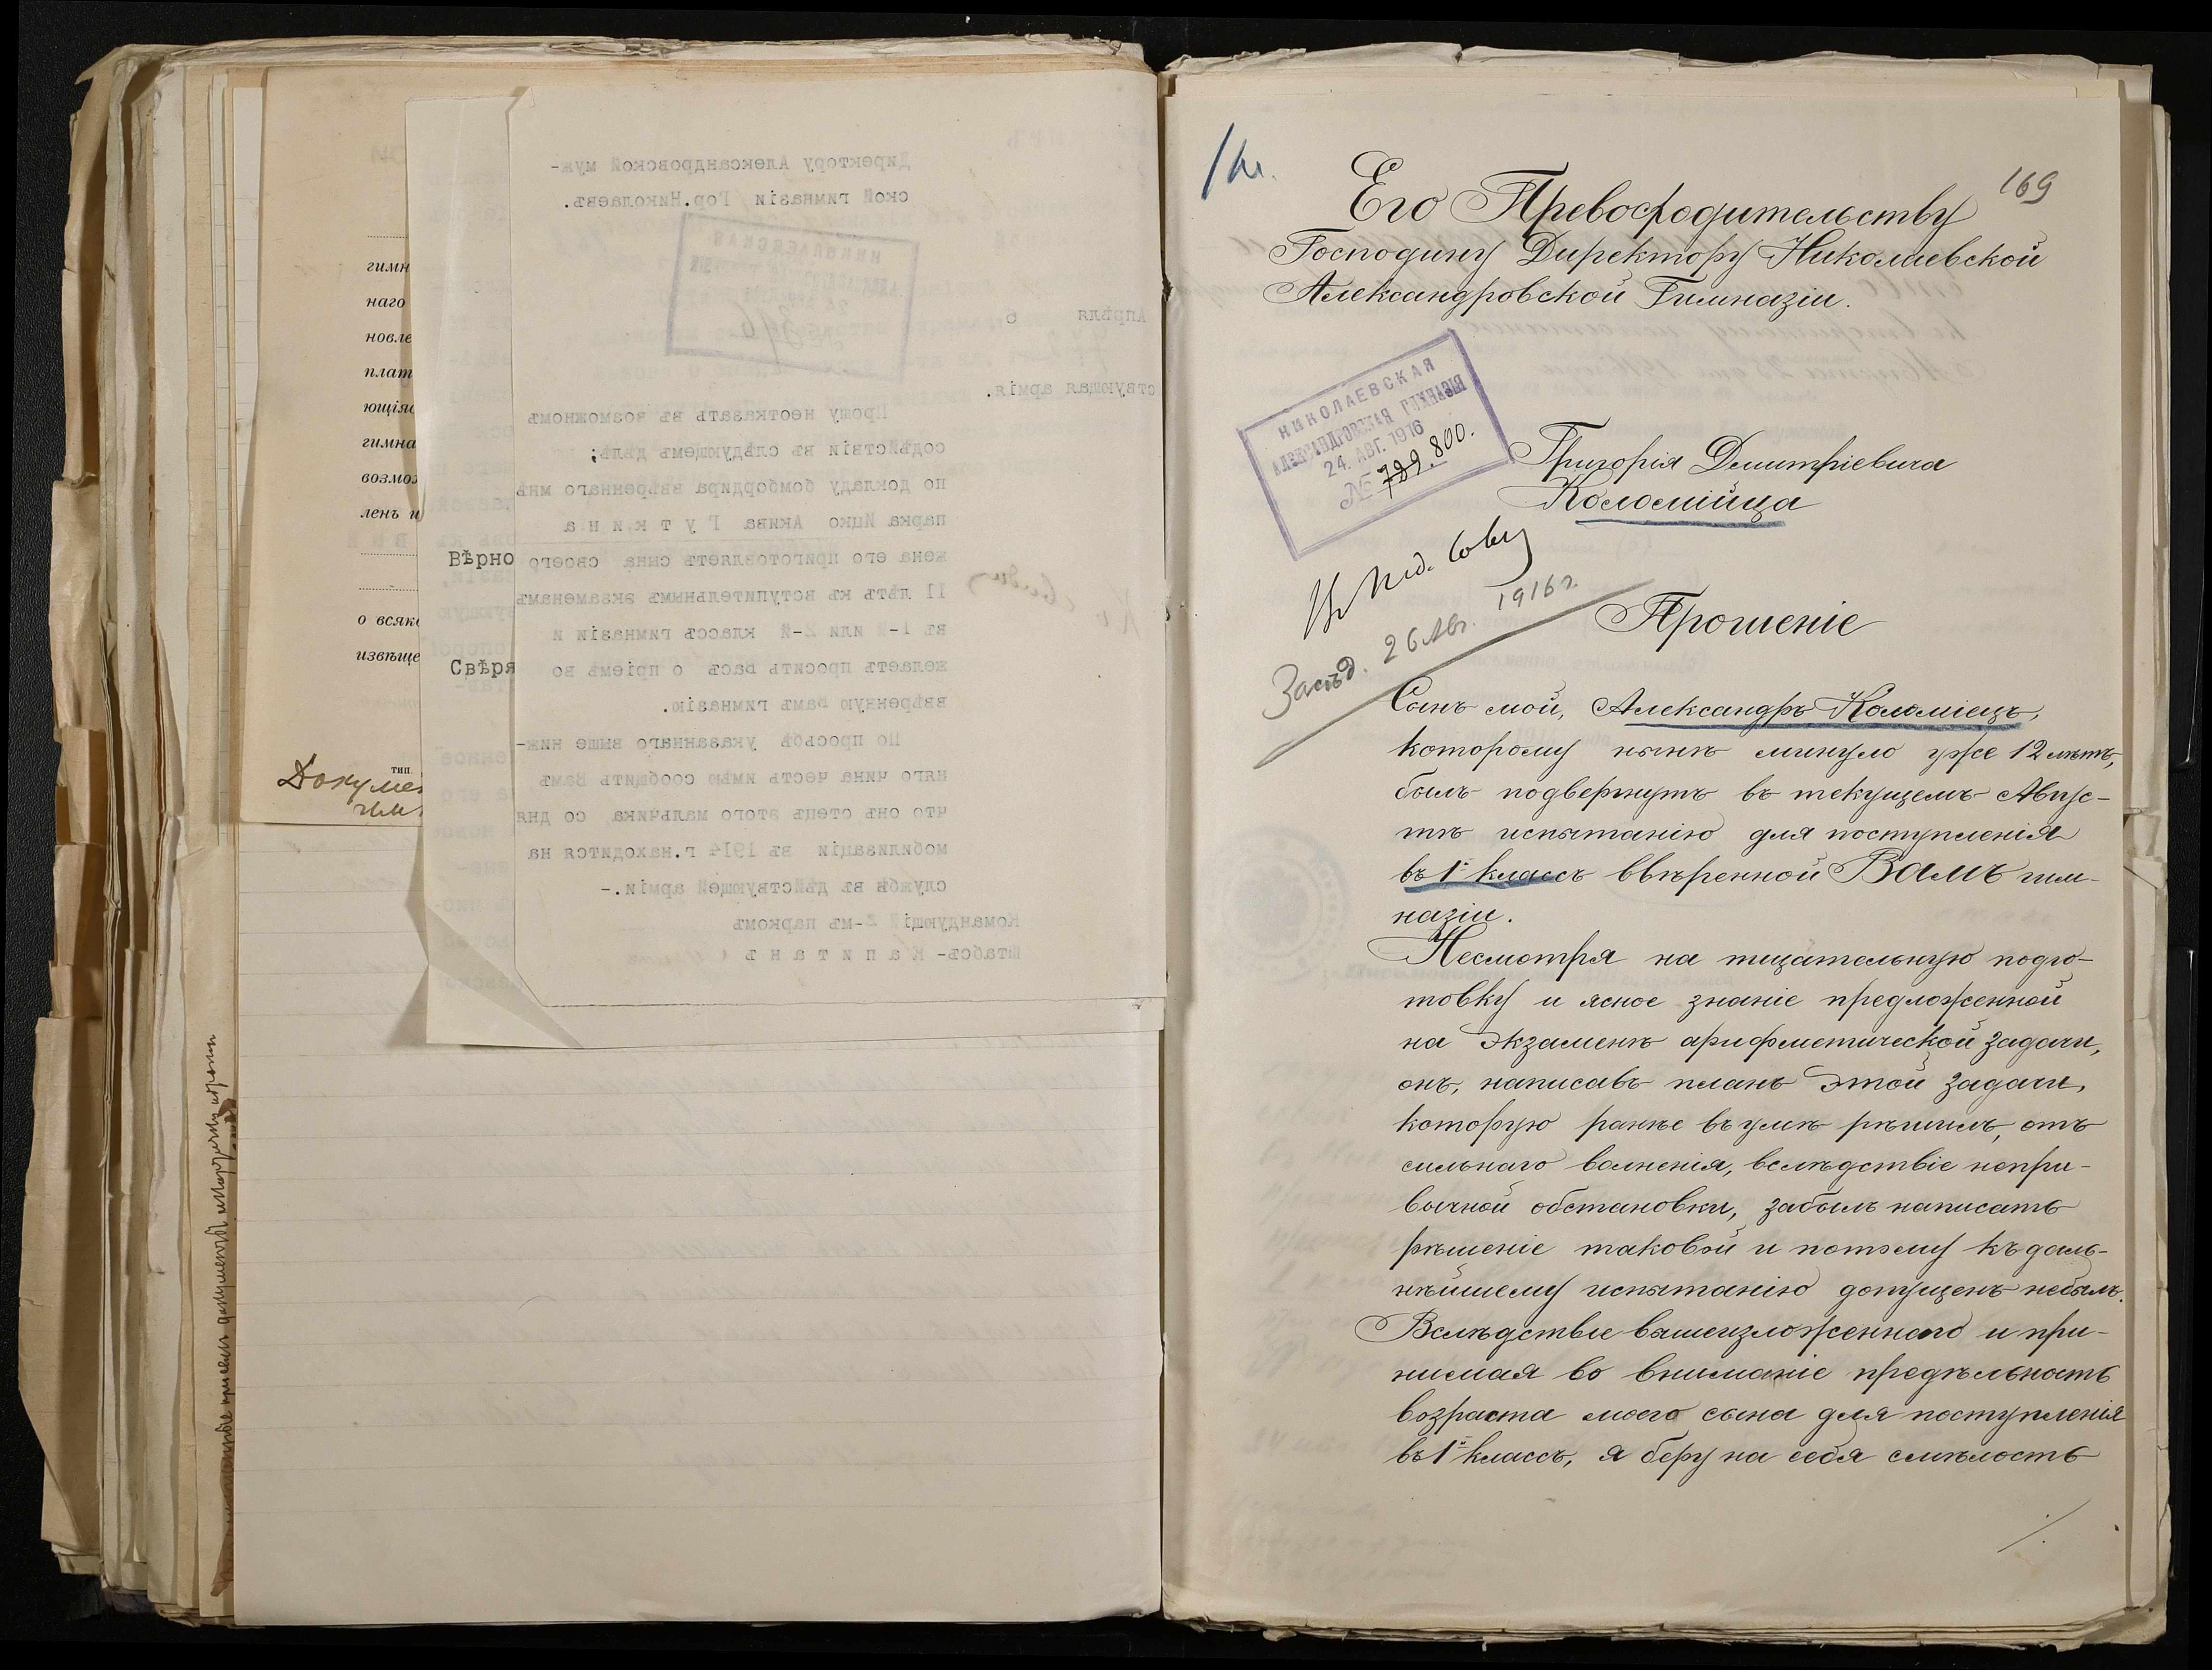 гимн
наго
новле
плат
ющіяс
гимна
возмож
ленъ и
о всяко
извѣще
тип.
Докумен
Вѣрно
Свѣря
Директору Александровской муж-
ской гимназіи Гор.Николаевъ.
Апрѣля 6
ствующая армія.
Прошу неотказать въ возможномъ
содѣйствіи въ слѣдующемъ дѣлѣ;
по докладу бомбордира ввѣреннаго мнѣ
парка Ицко Акива Г у т к и н а
жена его приготовляетъ сына своего
II лѣтъ къ вступительнымъ экзаменамъ
въ 1-й или 2-й классъ гимназіи и
желаетъ просить Васъ о пріемѣ во
ввѣренную Вамъ гимназію.
По просьбѣ указаннаго выше ниж-
няго чина честь имѣю сообщить Вамъ
что онъ отецъ этого мальчика со дня
мобилизаціи въ 1914 г.находится на
службѣ въ дѣйствующей арміи.-
Командующій 2-мъ паркомъ
Штабсъ- К а п и т а н ъ
169
Его Превосходительству
Господину Директору Николаевской
Александровской Гимназіи.
НИКОЛАЕВСКАЯ
АЛЕКСАНДРОВСКАЯ ГИМНАЗІЯ
24. АВГ. 1916
№ 789. 800.
Григорія Димитріевича
Коломійца
Въ Пед. Совѣ
Засѣд. 26 Авг. 1916 г.
Прошеніе
Сынъ мой, Александръ Коломіецъ,
которому нынѣ минуло уже 12 лѣтъ,
былъ подвергнутъ въ текущемъ Авгус-
тѣ испытанію для поступленія
въ 1й классъ ввѣренной ВАМЪ гим-
назіи.
Несмотря на тщательную подго-
товку и ясное знаніе предложенной
на экзаменѣ арифметической задачи,
онъ, написавъ планъ этой задачи,
которую ранѣе въ умѣ рѣшилъ, отъ
сильнаго волненія, вслѣдствіе непри-
вычной обстановки, забылъ написать
рѣшеніе таковой и потому къ даль-
нѣйшему испытанію допущенъ небылъ.
Вслѣдствіе вышеизложеннаго и при-
нимая во вниманіе предѣльность
возраста моего сына для поступленія
въ 1й классъ, я беру на себя смѣлость